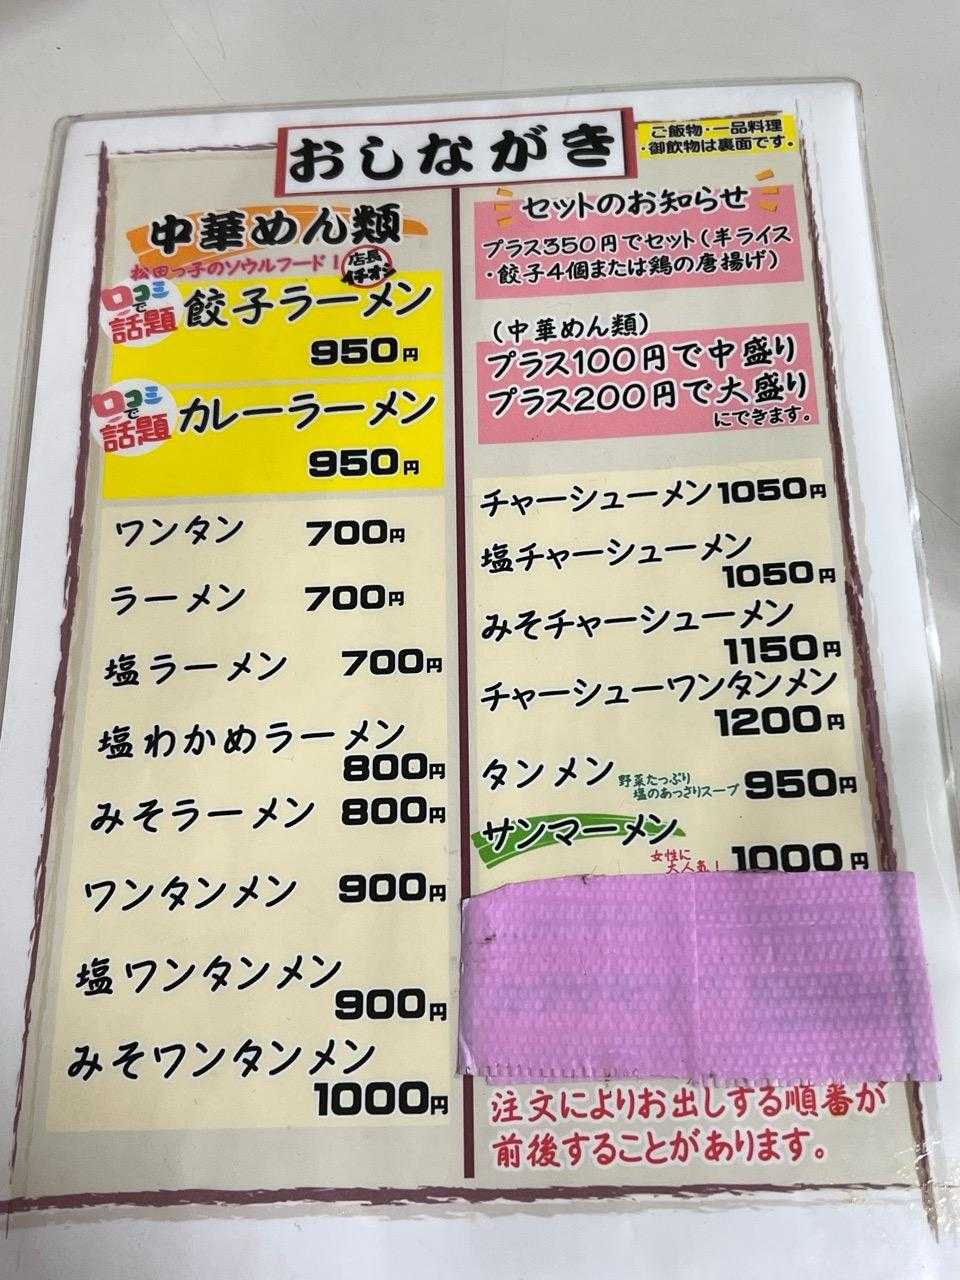 おしながき
ご飯物・一品料理
・御飲物は裏面です。
中華めん類
松田っ子のソウルフード！
店長
イチオシ
口コミ
で
話題
餃子ラーメン
950円
口コミ
で
話題
カレーラーメン
950円
ワンタン 700円
ラーメン 700円
塩ラーメン 700円
塩わかめラーメン
800円
みそラーメン 800円
ワンタンメン 900円
塩ワンタンメン
900円
みそワンタンメン
1000円
セットのお知らせ
プラス350円でセット（半ライス
・餃子4個または鶏の唐揚げ）
（中華めん類）
プラス100円で中盛り
プラス200円で大盛り
にできます。
チャーシューメン1050円
塩チャーシューメン
1050円
みそチャーシューメン
1150円
チャーシューワンタンメン
1200円
タンメン 野菜たっぷり
塩のあっさりスープ 950円
サンマーメン
女性に
大人気！ 1000円
注文によりお出しする順番が
前後することがあります。